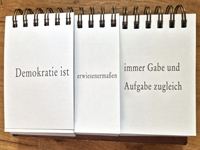 Demokratie ist
erwiesenermaßen
immer Gabe und
Aufgabe zugleich